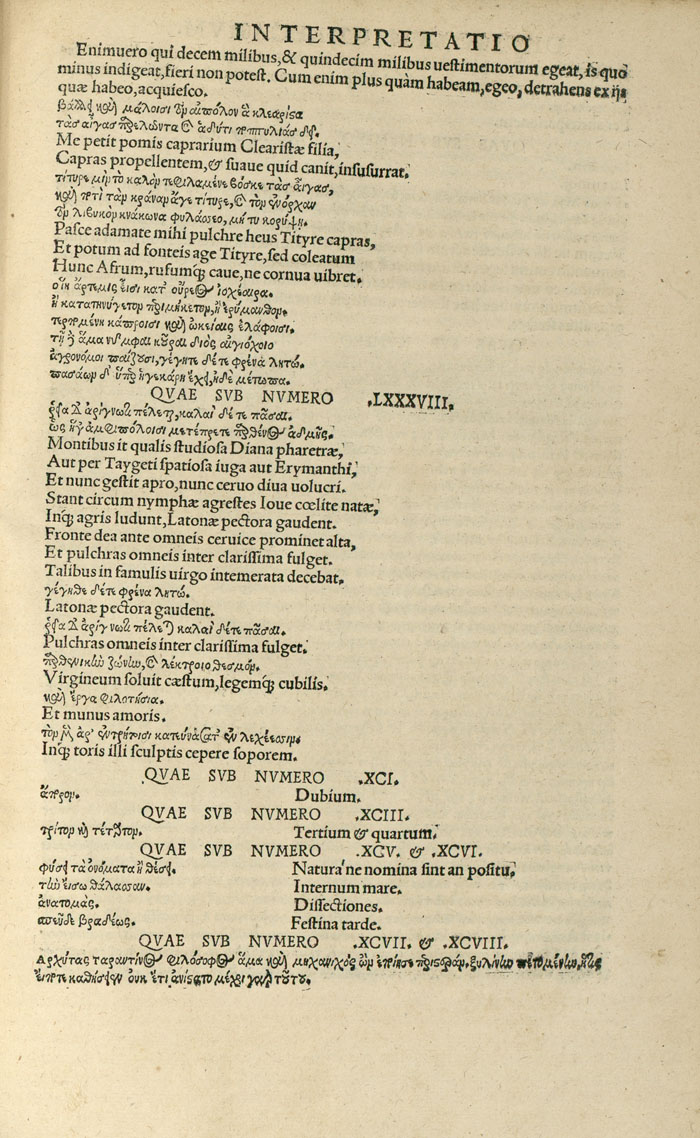 INTERPRETATIO
Enimuero qui decem milibus, & quindecim milibus uestimentorum egeat, is quo
minus indigeat, fieri non potest. Cum enim plus quàm habeam, egeo, detrahens ex ijs
quæ habeo, acquiesco.
βάλλει καὶ μάλοισι τὸν αἰπόλον ἁ κλεαρίστα
τὰς αἶγας παρελῶντα καὶ ἁδύ τι ποππυλιάσδει.
Me petit pomis caprarium Clearistæ filia,
Capras propellentem, & suaue quid canit, insusurrat.
τίτυρε μὶν τὸ καλὸν πεφιλαμένε βόσκε τὰσ αἶγας,
καὶ ποτὶ τὰν κράναν ἄγε τίτυρε, καὶ τὸν ἐνόρχαν
τὸν λιβυκὸν κνάκωνα φυλάσσεο, μή τυ κορύψῃ.
Pasce adamate mihi pulchre heus Tityre capras,
Et potum ad fonteis age Tityre, sed coleatum
Hunc Afrum, rufumq; caue, ne cornua uibret.
οἵη ἄρτεμις εἶσι κατ᾽ οὔρεος ἰοχέαιρα.
ἢ κατὰ τηΰγετον περιμήκετον, ἢ ἐρύμανθον.
τερπομένη κάπροισι καὶ ὠκείαις ἐλάφοισι.
τῇ δέ θ᾽ ἅμα νύμφαι κοῦραι διὸς αἰγιόχοιο
ἀγρονόμοι παίζουσι, γέγηθε δέ τε φρένα λητώ.
πασάων δ᾽ ὑπὲρ ἥγε κάρη ἔχει, ἠδὲ μέτωπα.
QVAE SVB NVMERO .LXXXVIII.
ῥεῖα δ᾽ ἀριγνώτη πέλεται, καλαὶ δέ τε πᾶσαι.
ὣς ἥγ᾽ ἀμφιπόλοισι μετέπρεπε παρθένος ἀδμής.
Montibus it qualis studiosa Diana pharetræ,
Aut per Taygeti spatiosa iuga aut Erymanthi,
Et nunc gestit apro, nunc ceruo diua uolucri.
Stant circum nymphæ agrestes Ioue cœlite natæ,
Inq; agris ludunt, Latonæ pectora gaudent.
Fronte dea ante omneis ceruice prominet alta,
Et pulchras omneis inter clarissima fulget.
Talibus in famulis uirgo intemerata decebat.
γέγηθε δέ τε φρένα λητώ.
Latonæ pectora gaudent.
ῥεῖα δ᾽ ἀριγνώτη πέλεται καλαὶ δέ τε πᾶσαι.
Pulchras omneis inter clarissima fulget.
παρθενικὴν ζώνην, καὶ λέκτροιο θεσμόν.
Virgineum soluit cæstum, legemq; cubilis.
καὶ ἔργα φιλοτήσια.
Et munus amoris.
τὸν μὲν ἄρ᾽ ἐν τρητοῖσι κατεύνασαν ἐν λεχέεσσιν.
Inq; toris illi sculptis cepere soporem.
QVAE SVB NVMERO .XCI.
ἄπορον. Dubium.
QVAE SVB NVMERO .XCIII.
τρίτον καὶ τέταρτον. Tertium & quartum.
QVAE SVB NVMERO .XCV. & .XCVI.
φύσει τὰ ὀνόματα ἢ θέσει. Natura'ne nomina sint an positu,
τὴν εἴσω θάλασσαν. Internum mare.
ἀνατομάς. Dissectiones.
σπεῦδε βραδέως. Festina tarde.
QVAE SVB NVMERO .XCVII. & .XCVIII.
Αρχύτας ταραντῖνος φιλόσοφος ἅμα καὶ μηχανικὸς ὢν ἐποίησε περιστερὰν ξυλίνην πετομένην, ἥτις
εἴποτε καθίσειεν οὐκ ἔτι ἀνίστατο μέχρι γὰρ τούτου.